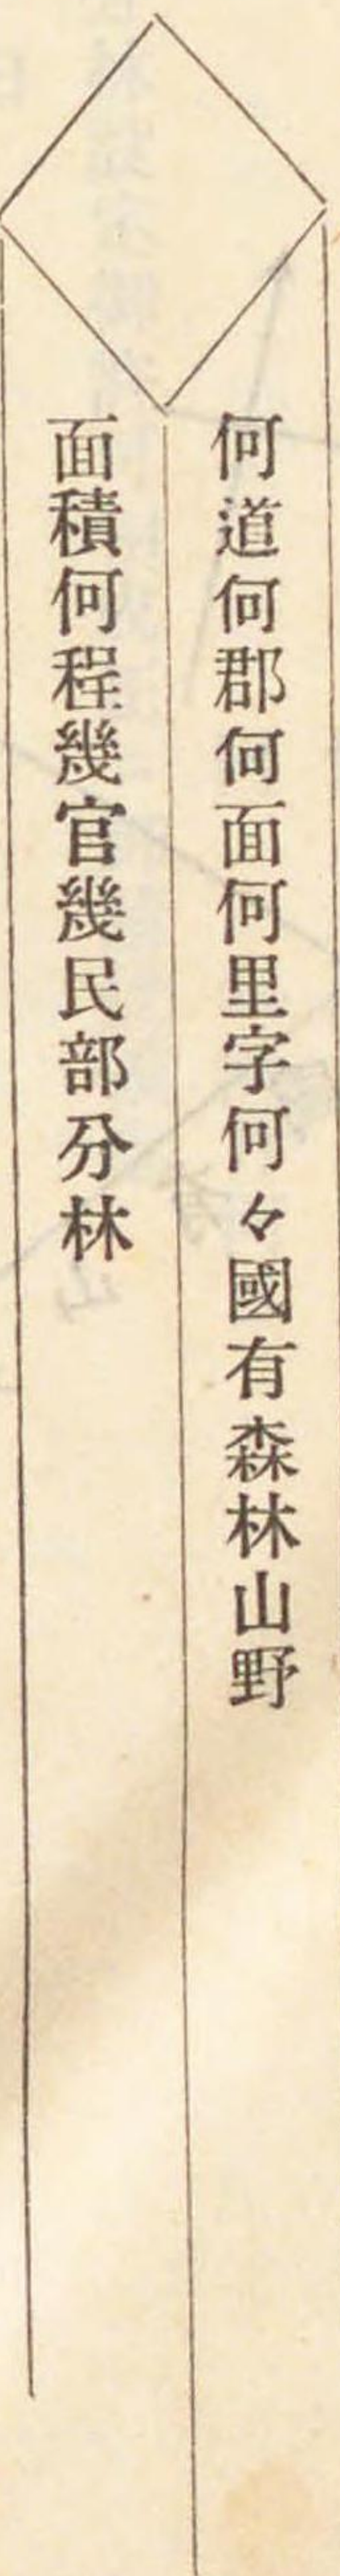 何道何郡何面何里字何々國有森林山野
面積何程幾官幾民部分林